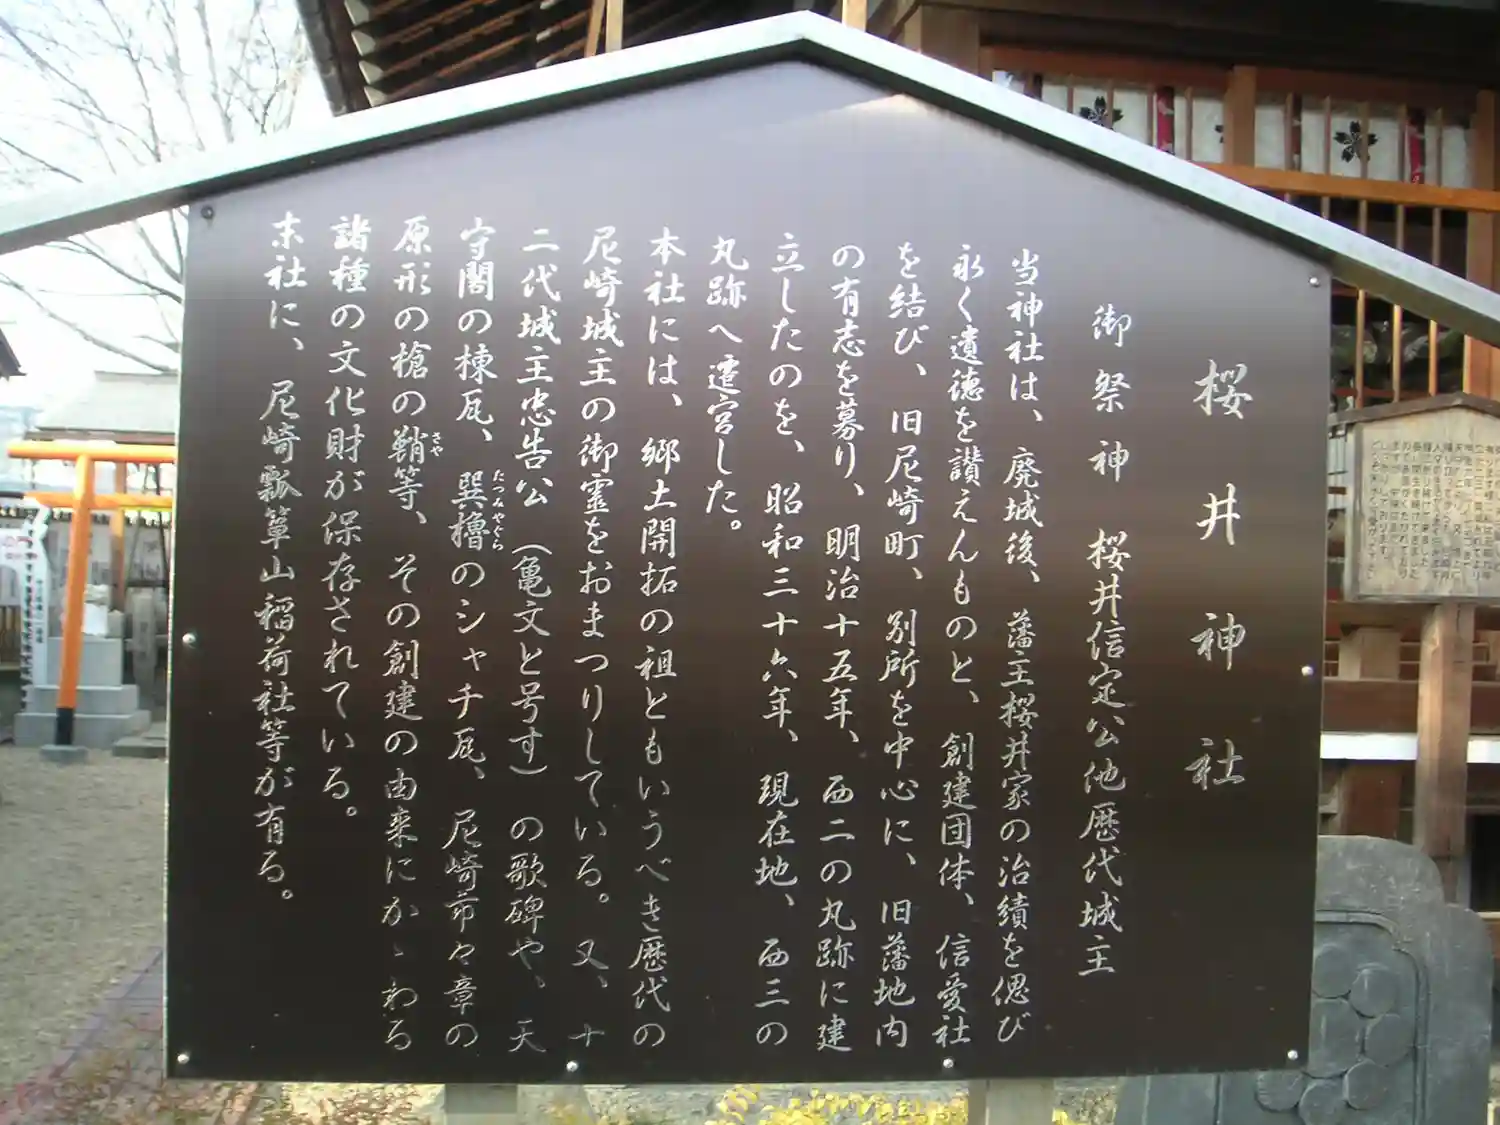 桜井神社
御祭神 桜井信定公他歴代城主
当神社は、廃城後、藩主桜井家の治績を偲び
永く遺徳を讃えんものと、創建団体、信愛社
を結び、旧尼崎町、別所を中心に、旧藩地内
の有志を募り、明治十五年、西二の丸跡に建
立したのを、昭和三十六年、現在地、西三の
丸跡へ遷宮した。
本社には、郷土開拓の祖ともいうべき歴代の
尼崎城主の御霊をおまつりしている。又、十
二代城主忠告公(亀文と号す)の歌碑や、天
守閣の棟瓦、巽櫓のシャチ瓦、尼崎市々章の
たつみやぐら
原形の槍の鞘等、その創建の由来にかゝわる
さや
諸種の文化財が保存されている。
末社に、尼崎瓢箪山稲荷社等が有る。